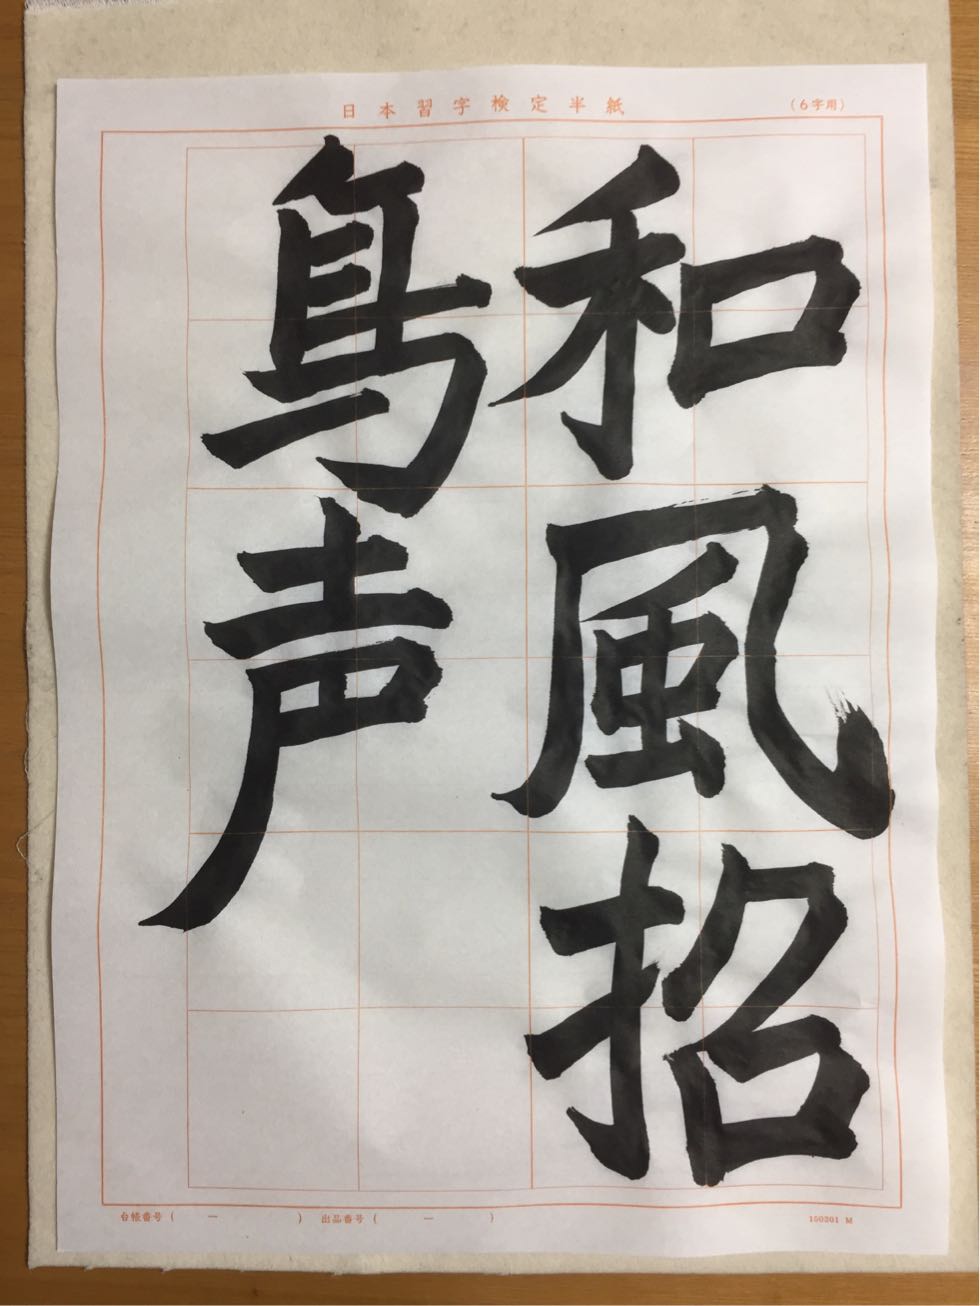 日本習字検定半紙
(6字用)
和風招
鳥声
台帳番号( ー )
出品番号( ー )
150301 M